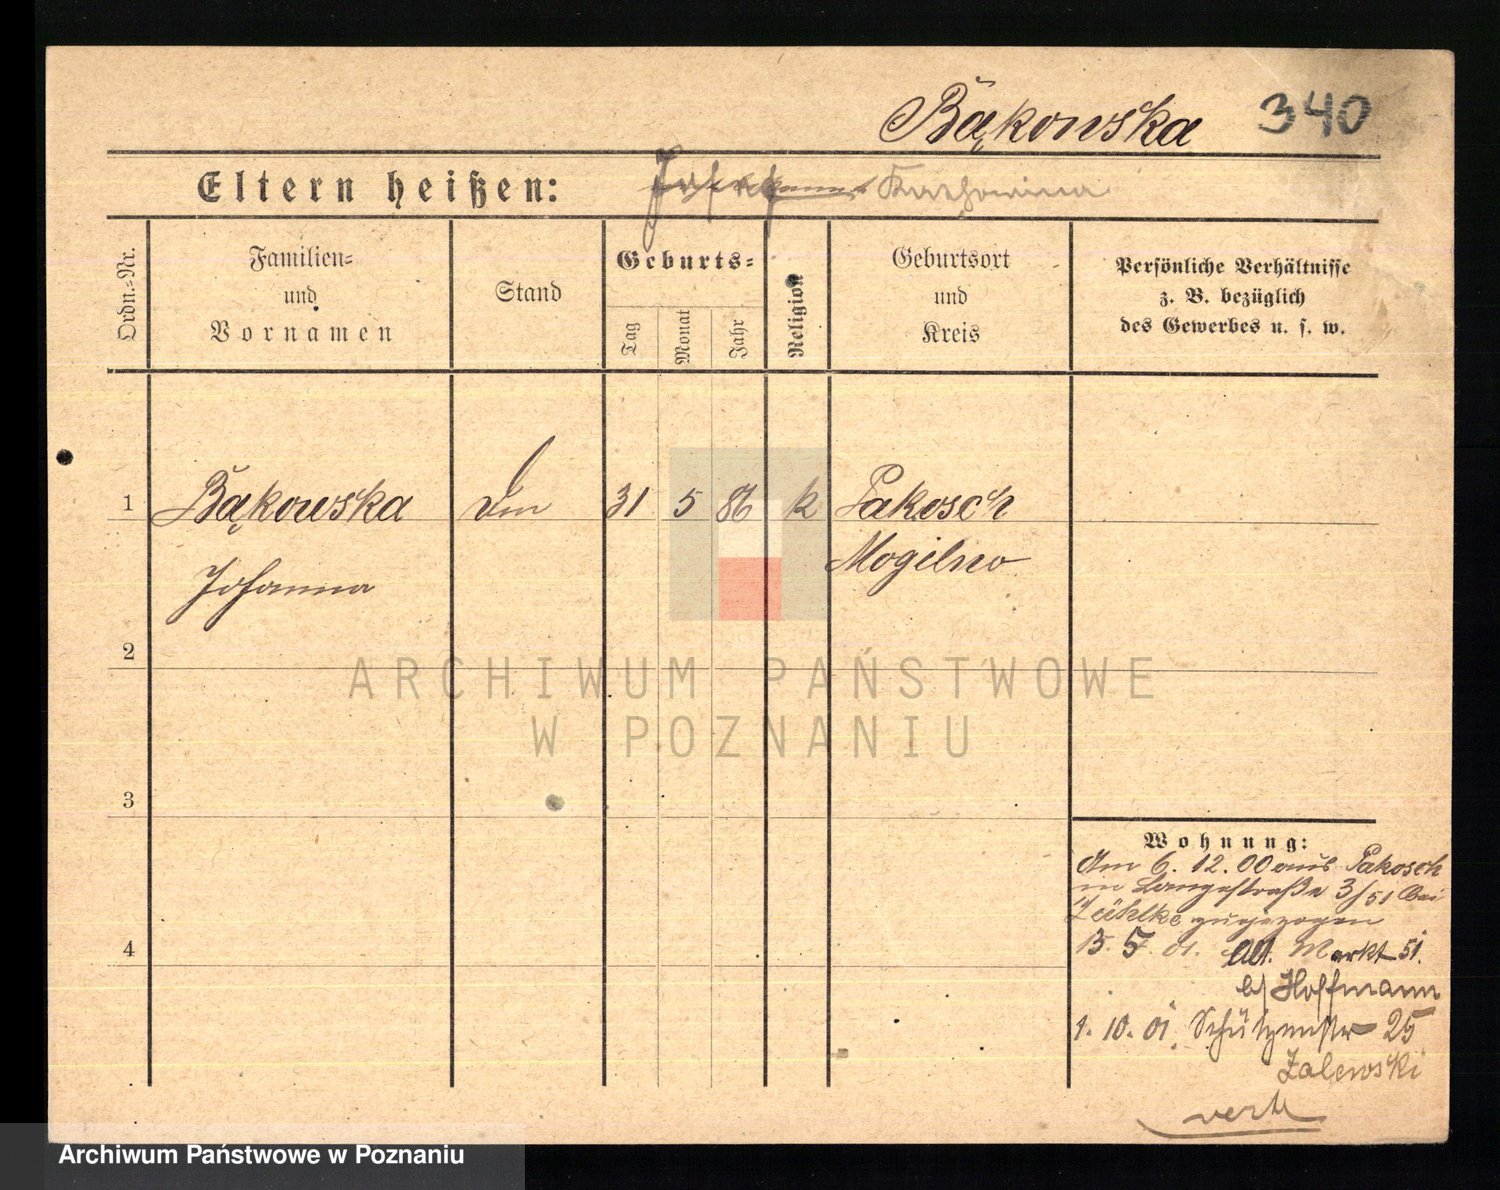 Bąkowska 340
Eltern heißen: Josef Katharina
Ordn.-Nr.
Familien-
und
Vornamen
Stand
Geburts-
Tag
Monat
Jahr
Religion
Geburtsort
und
Kreis
Persönliche Verhältnisse
z. B. bezüglich
des Gewerbes u. s. w.
1 Bąkowska 31 5 86 k Pakosch
Johanna Mogilno
2
ARCHIWUM PAŃSTWOWE
W POZNANIU
3
4
Wohnung:
Am 6. 12. 00 aus Pakosch
Langestraße 3/51 bei
zugezogen
15. 5. 01. Alt. Markt 51.
b/ Hoffmann
1. 10. 01. Schützenstr 25
Zalewski
Archiwum Państwowe w Poznaniu